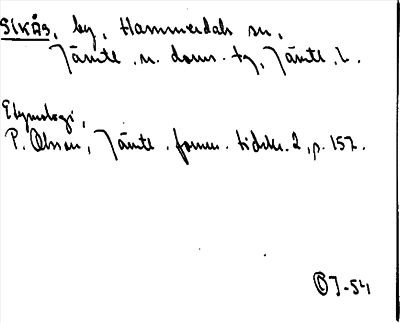 SIKÅS, by, Hammerdals sn,
Jämtl. n. doms. tg, Jämtl. l.
Etymologi,
P. Olsson, Jämtl. fornm. tidskr. 2, p. 157.
OJ-54